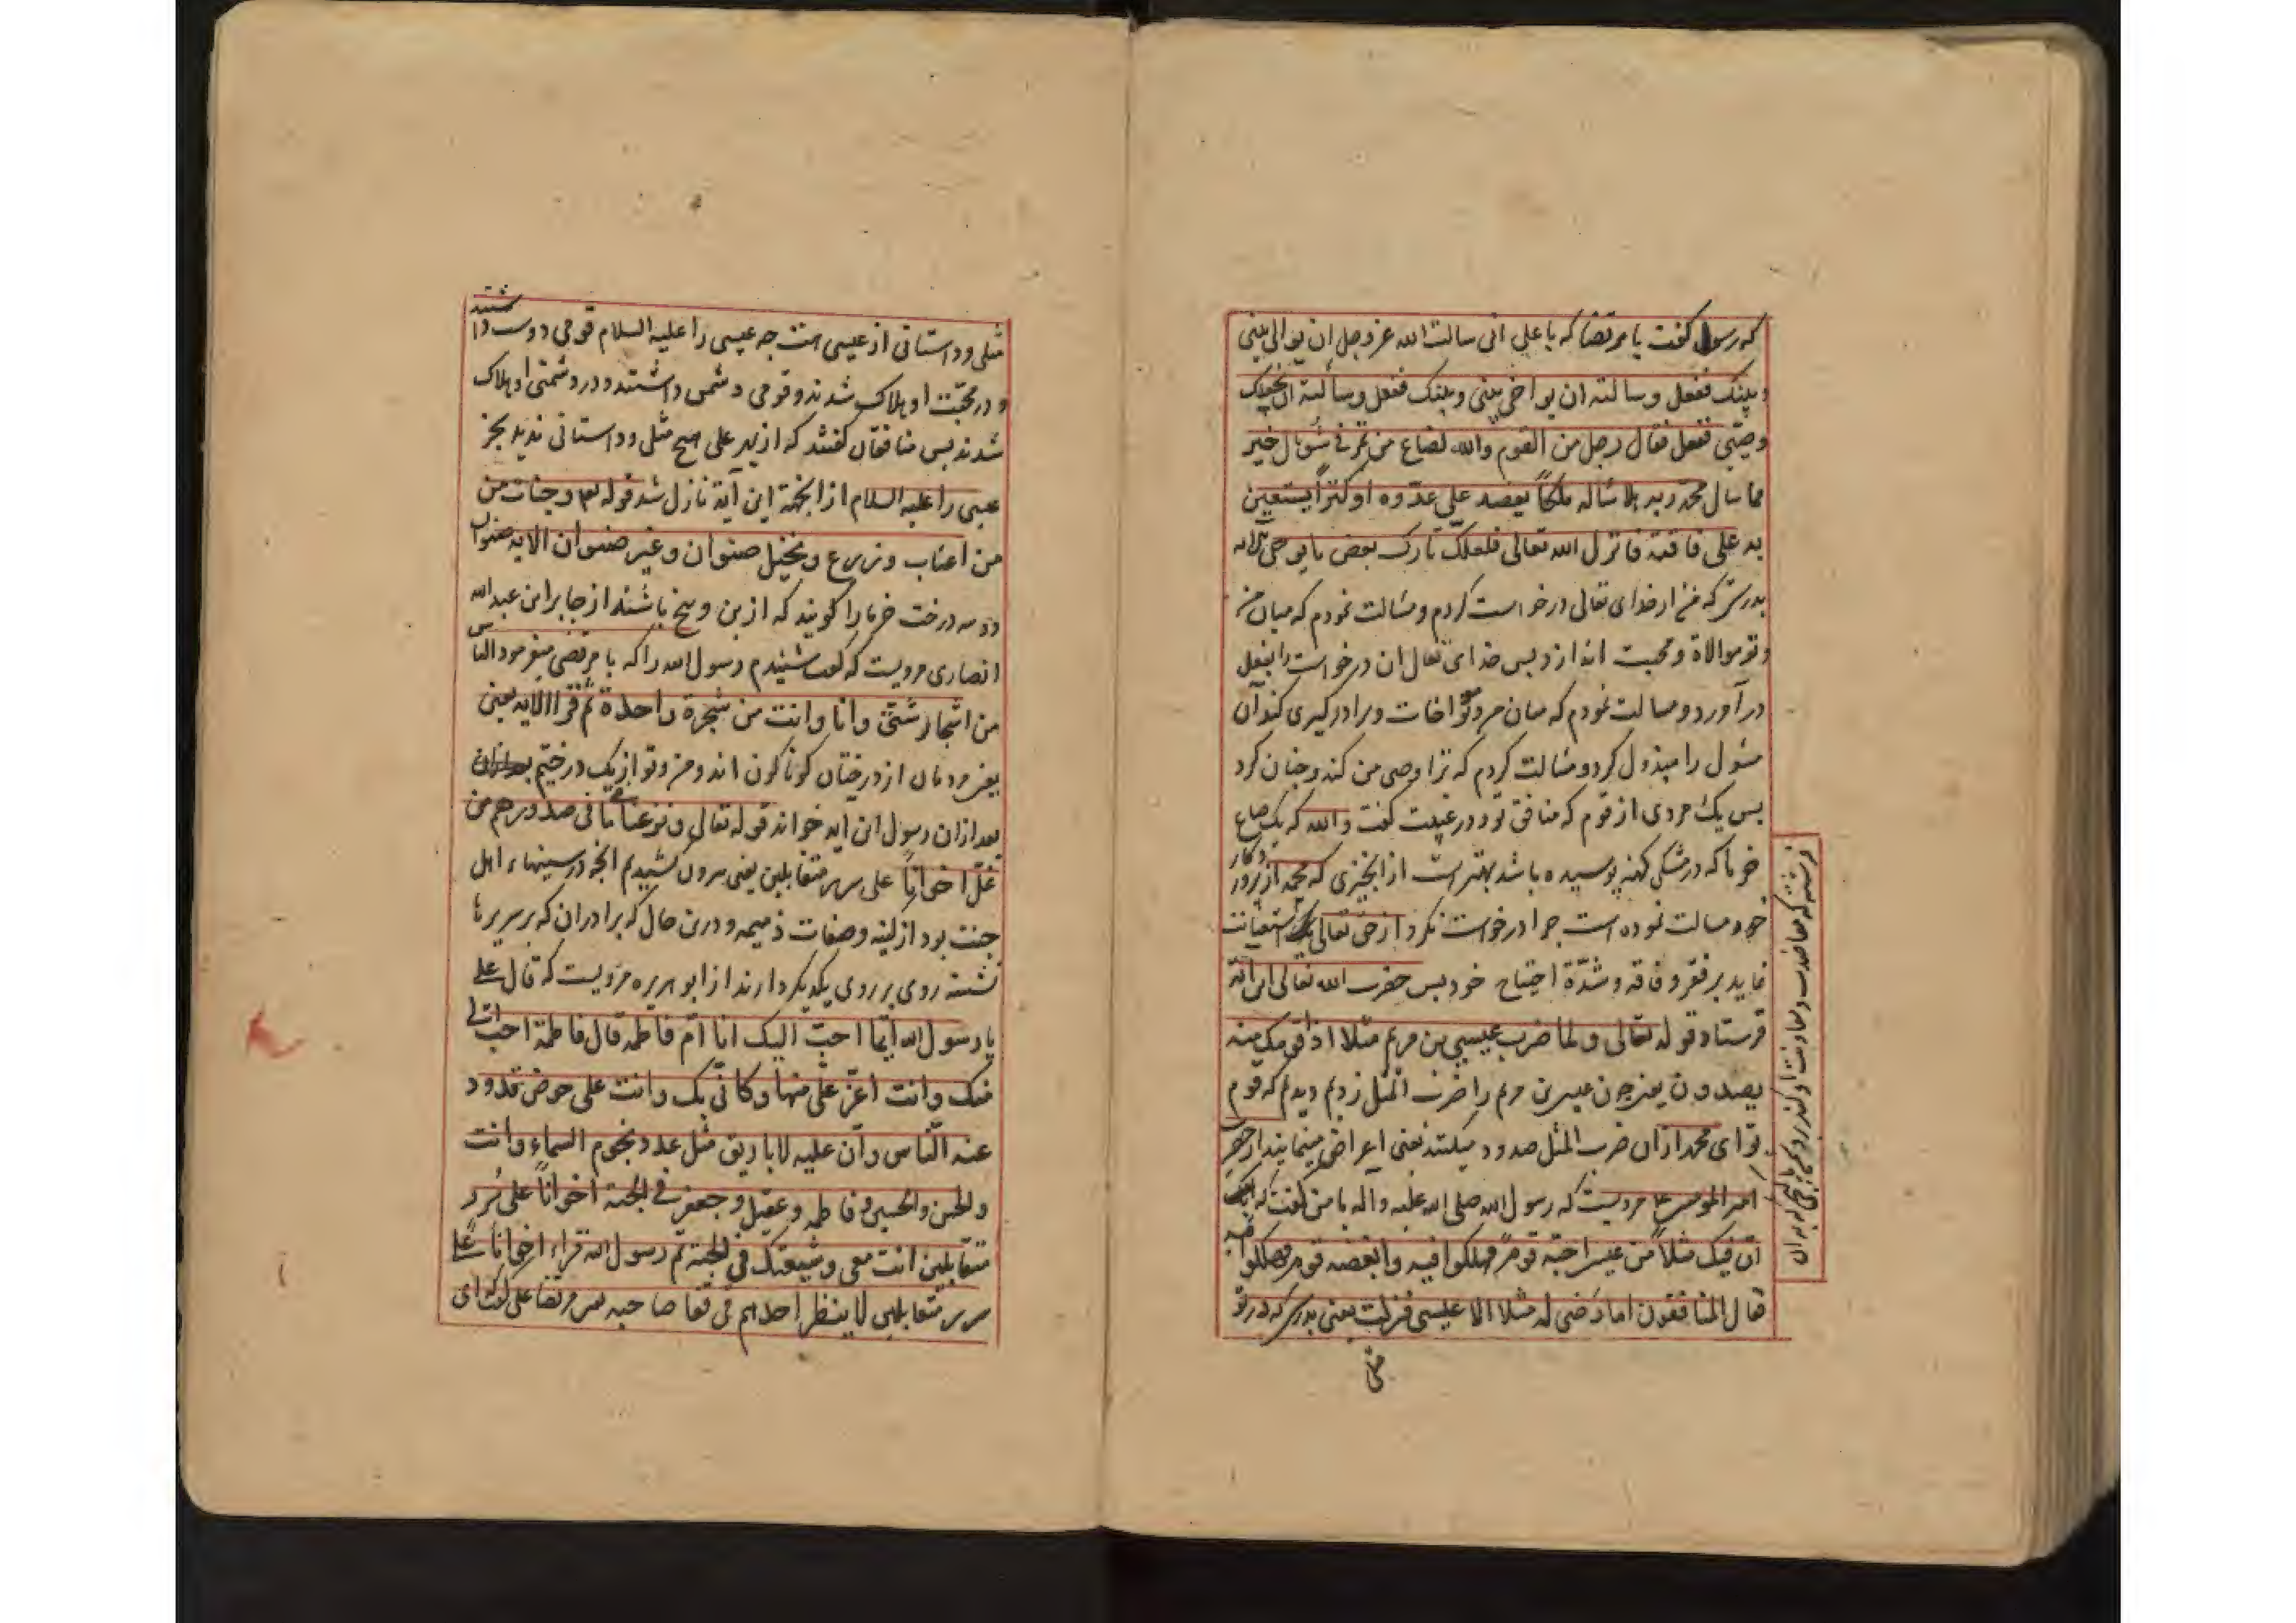 که رسول گفت با مرتضا که یا علی انی سالت الله عز وجل ان یوالی بینی
وبینک ففعل وسالته ان یواخی بینی وبینک ففعل وسألته ان یجعلک
وصیّی ففعل فقال رجل من القوم والله لصاع من تمر فی شن بال خیر
مما سال محمد ربه هلا سٔاله ملکاً یعضد علی عدّوه او کنزاً یستعین
به علی فاقته فانزل الله تعالی فلعلک تارک بعض ما یوحی الیک الایه
بدرستی که من از خدای تعالی درخواست کردم ومسٔالت نمودم که میان من
وتو موالاة و محبت اندازد بس خدای تعالی ان درخواست را بفعل
در آورد و مسالت نمودم که میان من و تو مواخات و برادرگیری کند آن
مسٔول را مبذول کرد و مسٔالت کردم که ترا وصی من کند و چنان کرد
بس یک مردی از قوم که منافق بود در غیبت گفت والله که یک صاع
خرما که در مشکی کهنه پوسیده باشد بهتر است از انچیزی که محمد از پروردکار
خود مسالت نموده است چرا درخواست نکرد از حق تعالی استعانت
نماید بر فقر و فاقه و شدّة احتیاج خود بس حضرت الله تعالی این آیة
فرستاد قوله تعالی ولما ضرب عیسی بن مریم مثلا اذا قومک منه
یصدون یعنی چون عیسی بن مریم را ضرب المثل زدیم دیدیم که قوم
تو ای محمد از ان ضرب المثل صدود میکنند یعنی اعراض مینمایند از حضرت
امیر المومنین ع مرویست که رسول الله صلی الله علیه و آله با من گفت که
انّ فیک مثلاً من عیسی احبّه قوم فهلکوا فیه وابغضه قوم فهلکوا فیه
فقال المنافقون اما رضی له مثلا الا عیسی فنزلت یعنی بدرستی که در تو
مثلی
فرشته که معاضدت و معاونت او کند بر دشمن یا گنجی که به ان
مثلی و داستانی از عیسی است چه عیسی را علیه السلام قومی دوست داشتند
و در محبّت او هلاک شدند و قومی دشمن داشتند و در دشمنی او هلاک
شدند بس منافقان گفتند که از بهر علی هیچ مثل و داستانی ندید بجز
عیسی را علیه السلام از اینجهة این آیة نازل شد قوله تع وجنات من
من اعناب وزرع ونخیل صنوان وغیر صنوان الایه صنوان
دو سه درخت خرما را گویند که از بن و بیخ باشند از جابر ابن عبد الله
انصاری مرویست که گفت شنیدم رسول الله را که با مرتضی میفرمود الناس
من اشجار شتّی وانا وانت من شجرة واحدة ثم قرا الایه یعنی
یعنی مردمان از درختان گوناگون اند و من و تو از یک درختیم
بعد از ان رسول این ایه خواند قوله تعالی ونزعنا ما فی صدورهم من
غلّ اخواناً علی سرر متقابلین یعنی بیرون کشیدیم انچه در سینهاء اهل
جنت بود از کینه و صفات ذمیمه و درین حال که برادران که بر سریرها
نشسته روی بر روی یکدیکر دارند از ابو هریره مرویست که قال علی
یا رسول الله ایّما احبّ الیک انا ام فاطمه قال فاطمة احب الی
منک وانت اعزّ علیّ منها وکانّی بک وانت علی حوض تذود
عنه الناس وان علیه لاباریق مثل عدد نجوم السماء وانت
والحسن والحسین و فاطمه وعقیل وجعفر فی الجنة اخواناً علی سُرر
متقابلین انت معی وشیعتک فی الجنة ثم رسول الله قراء اخواناً علی
سرر متقابلین لا ینظر احدهم فی قفا صاحبه بس مرتضا علی گفت ای